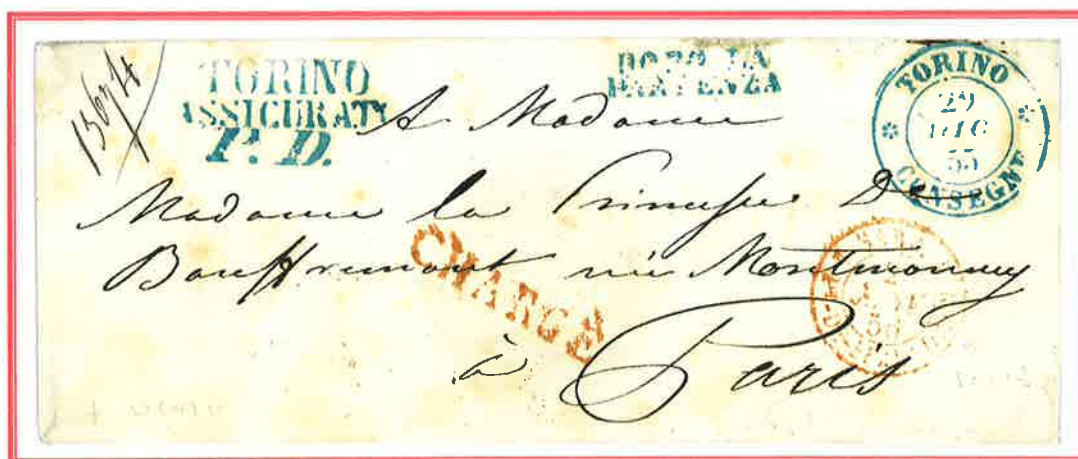 13674
TORINO
ASSICURATI
P. D.
DOPO LA
PARTENZA
TORINO
29
DIC
55
CONSEGNE
A Madame
Madame la Princesse De
Bauffremont née Montmorency
CHARGÉ
à Paris